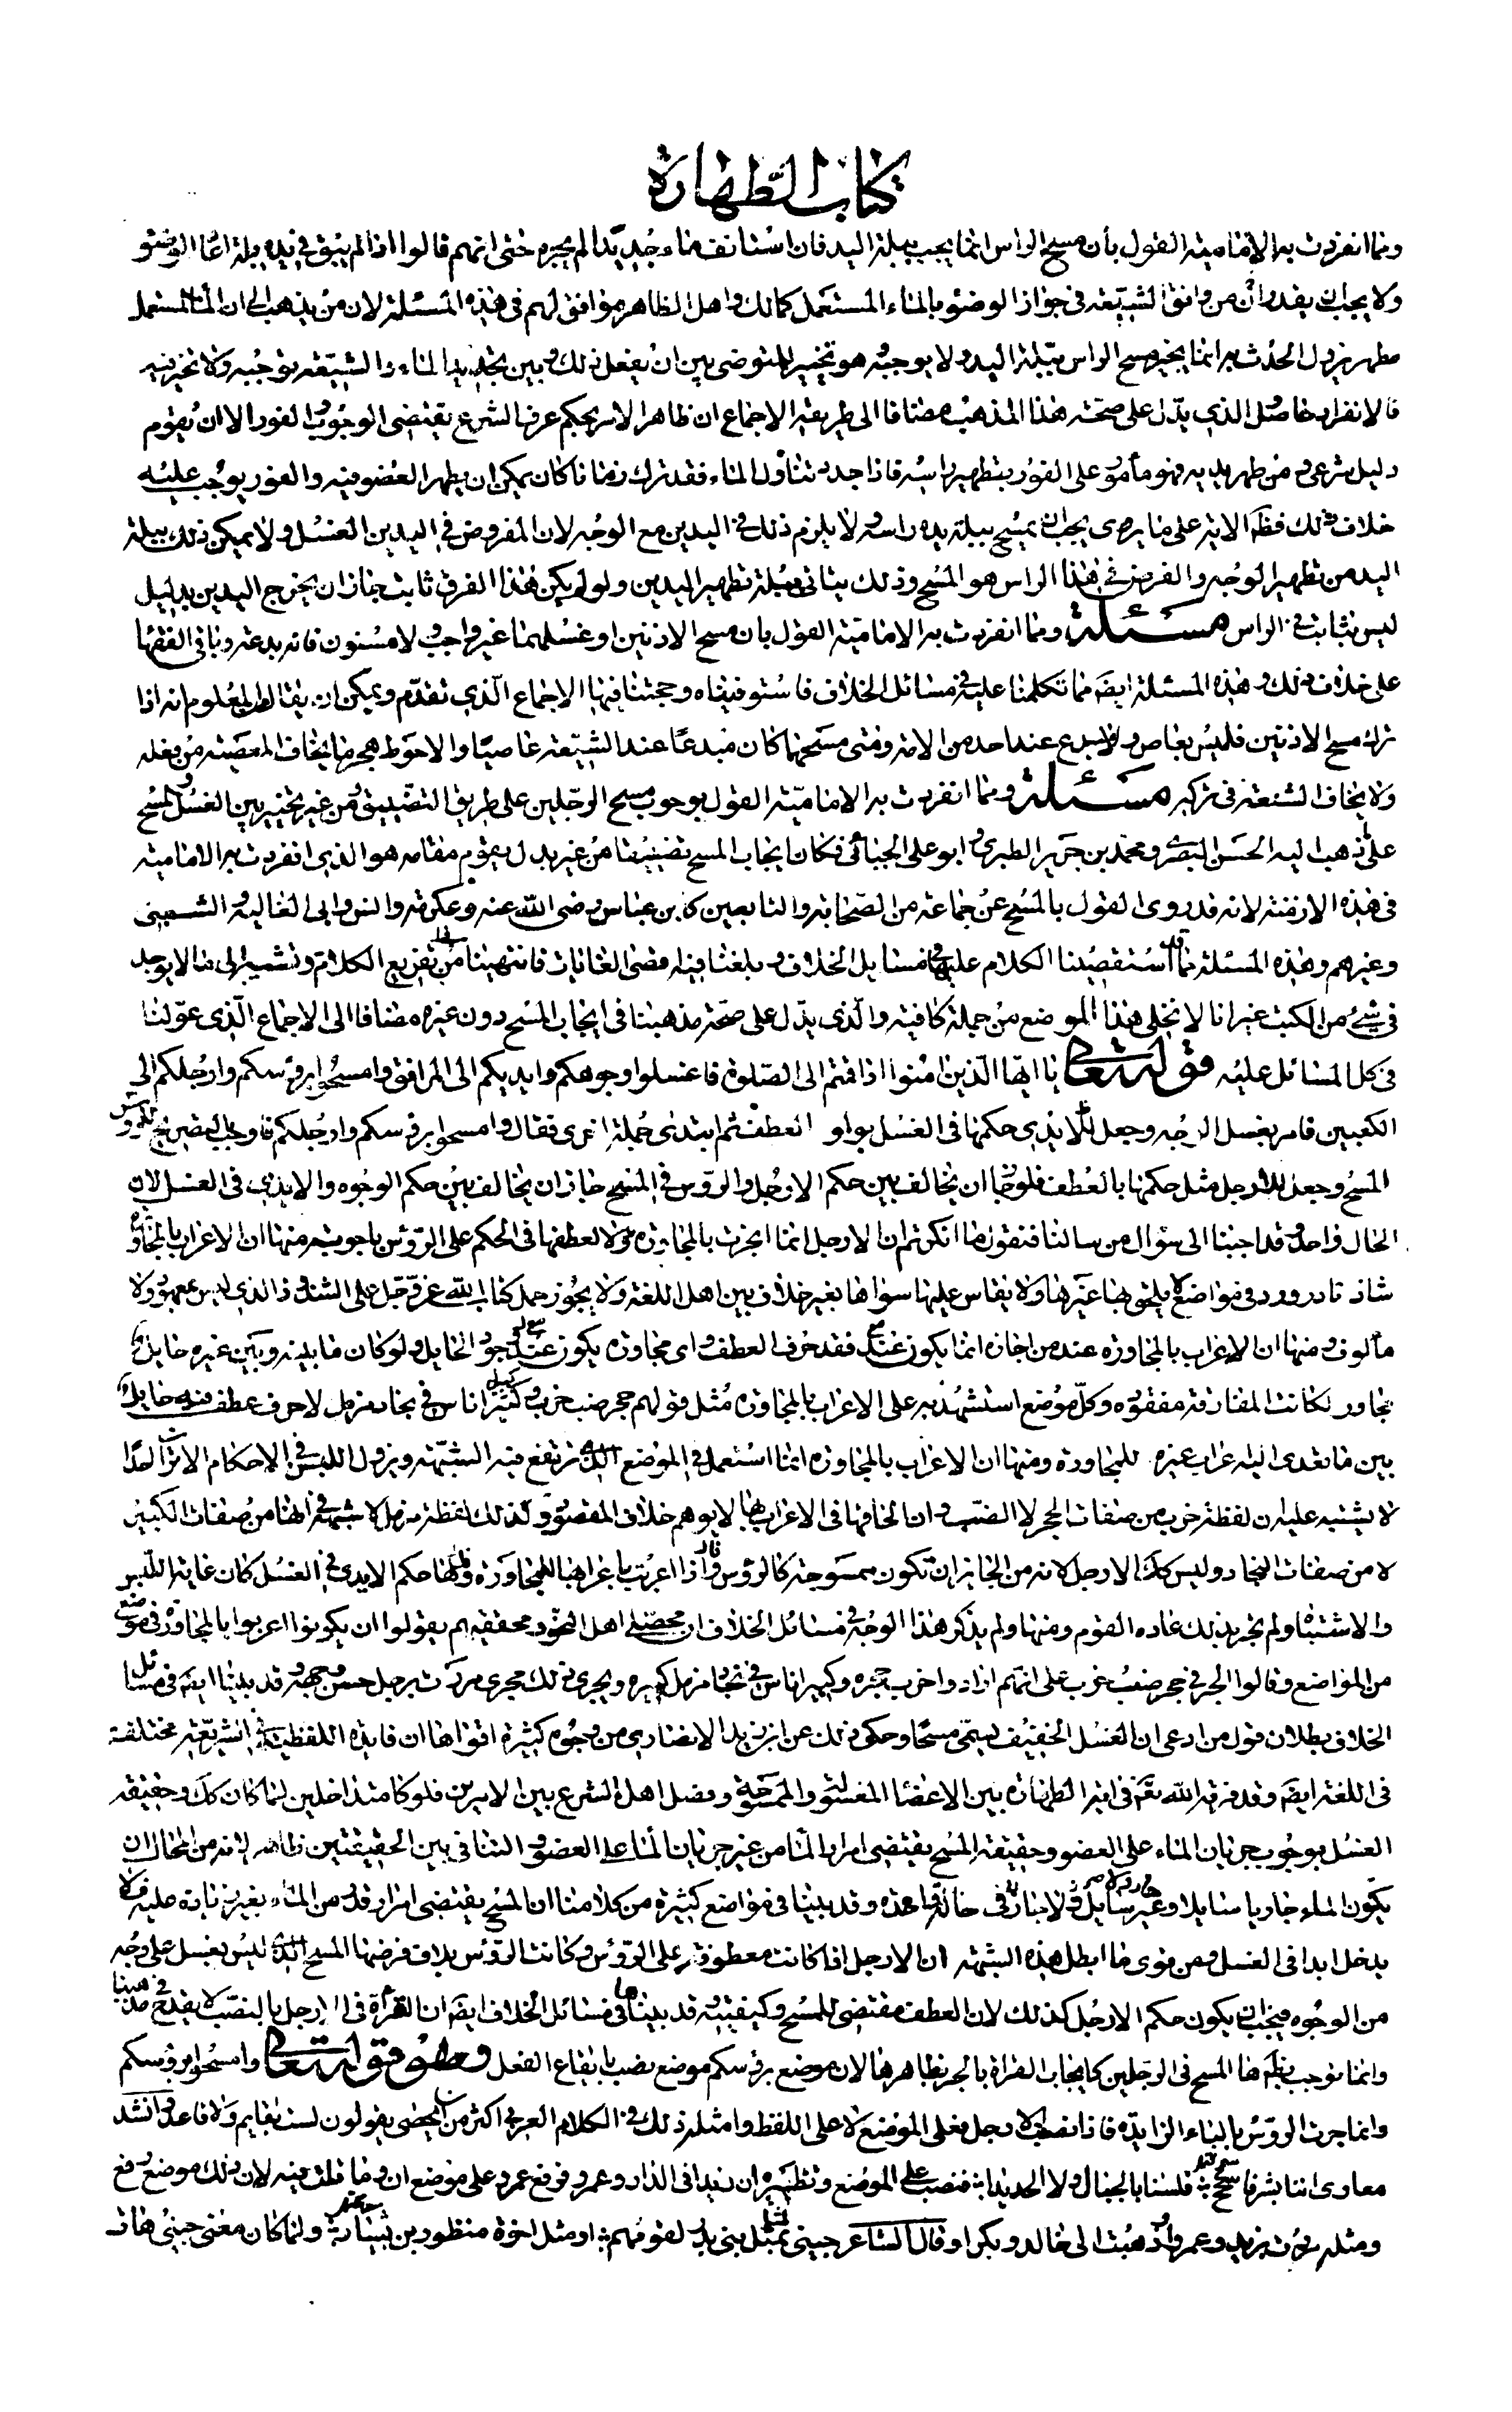 كتاب الطهارة
ومما انفردت به الامامية القول بأن مسح الراس انما يجب ببلة اليد فان استانف ماء جديدا لم يجزه حتى انهم قالوا اذا لم يبق في يده بلة اعاد الوضوء
ولا يجب ان يقدر ان من وافق الشيعة في جواز الوضوء بالماء المستعمل كمالك واهل الظاهر موافق لهم في هذه المسئلة لان من يذهب الى ان الماء المستعمل
مطهر يزيل الحدث به انما يجيز مسح الراس ببلة اليد ولا يوجبه هو تخيير المتوضى بين ان يفعل ذلك وبين تجديد الماء والشيعة توجبه ولا تخير فيه
فالانفراد حاصل الذي يدل على صحة هذا المذهب مضافا الى طريقة الاجماع ان ظاهر الامر بحكم عرف الشرع يقتضى الوجوب والفور الا ان يقوم
دليل شرعي ومن طهر يديه فهو مأمور على الفور بتطهير راسه فاذا جدد تناول الماء فقد ترك زمانا كان يمكن ان يطهر العضو فيه والفور يوجب عليه
خلاف ذلك فظهر الاية على ما يرى يجب ان يمسح ببلة يده راسه ولا يلزم ذلك في اليدين مع الوجه لان المفروض في اليدين الغسل ولا يمكن ذلك ببلة
اليد من تطهير الوجه والفرض في هذا الراس هو المسح وذلك يتاتى ببلة تطهير اليدين ولو لم يكن هذا الفرق ثابت جاز ان يخرج اليدين بدليل
ليس بثابت في الراس مسئلة ومما انفردت به الامامية القول بان مسح الاذنين او غسلهما غير واجب ولا مسنون فانه بدعة وباقي الفقها
على خلاف ذلك وهذه المسئلة ايضا مما تكلمنا عليه في مسائل الخلاف فاستوفيناه وحجتنا فيها الاجماع الذي تقدم ويمكن ان يقال المعلوم انه اذا
ترك مسح الاذنين فليس بعاص ولا مبدع عند احد من الامة ومتى مسحهما كان مبدعا عند الشيعة عاصيا والاحوط هجر ما يخاف المعصية من فعله
ولا يخاف لشنعة في تركه مسئلة ومما انفردت به الامامية القول بوجوب مسح الرجلين على طريق التضييق ومن غير تخيير بين الغسل والمسح
على ما ذهب اليه الحسن البصرى ومحمد بن جرير الطبرى وابو على الجبائى فكان ايجاب المسح تضييقا من غير بدل يقوم مقامه هو الذي انفردت به الامامية
في هذه الازمنة لانه قد روى القول بالمسح عن جماعة من الصحابة والتابعين كابن عباس رضى الله عنه وعكرمة وانس وابى العالية والشعبى
وغيرهم وهذه المسئلة مما استقصينا الكلام عليها في مسايل الخلاف وبلغنا فيه اقصى الغايات فانتهينا من تفريع الكلام وتشعبه الى ما لا يوجد
في شئ من الكتب غير انا لا نخلى هذا الموضع من جملة كافية والذى يدل على صحة مذهبنا في ايجاب المسح دون غيره مضافا الى الاجماع الذى عولنا
في كل المسائل عليه قوله تعالى يا ايها الذين امنوا اذا قمتم الى الصلوة فاغسلوا وجوهكم وايديكم الى المرافق وامسحوا برؤسكم وارجلكم الى
الكعبين فامر بغسل الوجه وجعل للايدي حكمها في الغسل بواو العطف ثم ابتدى جملة اخرى فقال وامسحوا برؤسكم وارجلكم فاوجب بالتصريح للرؤس
المسح وجعل للارجل مثل حكمها بالعطف فلو جاز ان يخالف بين حكم الارجل والرؤس في المسح جاز ان يخالف بين حكم الوجوه والايدي في الغسل لان
الحال واحدة وقد اجبنا الى سؤال من سالنا فنقول ما انكرتم ان الارجل انما انجرت بالمجاورة لا لعطفها في الحكم على الرؤس باجوبة منها ان الاعراب بالمجاورة
شاذ نادر ورد في مواضع لا يلحق بها غيرها ولا يقاس عليها سواها بغير خلاف بين اهل اللغة ولا يجوز حمل كتاب الله عز وجل على الشذوذ الذي ليس بمعهود ولا
مألوف ومنها ان الاعراب بالمجاورة عند من اجازه انما يكون عند فقد حرف العطف واى مجاورة يكون عند وجود الحايل ولو كان ما بينه وبين غيره حايل
مجاور لكانت المفارقة مفقودة وكل موضع استشهد به على الاعراب بالمجاورة مثل قولهم جحر ضب خرب وكبير اناس في بجاد مزمل لا حرف عطف فيه حايل
بين ما تعدى اليه اعراب غيره للمجاورة ومنها ان الاعراب بالمجاورة انما استعمل في الموضع الذى ترتفع فيه الشبهة ويزول اللبس في الاحكام الا ترى ان احدا
لا يشتبه عليه ان لفظة خرب من صفات الجحر لا الضب وان الحاقها في الاعراب بها لا يوهم خلاف المقصود وكذلك لفظة مزمل لا شبهة في انها من صفات الكبير
لا من صفات البجاد وليس كذلك الارجل لانه من الجايز ان تكون ممسوحة كالرؤس فاذا اعربت باعرابها للمجاورة ولها حكم الايدي في الغسل كان غاية اللبس
والاشتباه ولم تجر بذلك عادة القوم ومنها ولم يذكر هذا الوجه في مسائل الخلاف ان محصلى اهل النحو ومحققيهم لم يقولوا ان يكونوا اعربوا بالمجاورة في موضع
من المواضع وقالوا الجر في جحر ضب خرب على انهم ارادوا خرب جحره وكبير اناس في بجاد مزمل كبيره ويجرى ذلك مجرى مررت برجل حسن وجهه وقد بينا ايضا في مسائل
الخلاف بطلان قول من ادعى ان الغسل الخفيف يسمى مسحا وحكى ذلك عن ابى زيد الانصاري من وجوه كثيرة اقواها ان فايدة اللفظين في الشريعة مختلفة
في اللغة ايضا وقد فرق الله تعالى في اية الطهارة بين الاعضاء المغسولة والممسوحة وفصل اهل الشرع بين الامرين فلو كانا متداخلين لما كان كذلك وحقيقة
الغسل يوجب جريان الماء على العضو وحقيقة المسح يقتضى امرار الماء من غير جريان الماء على العضو والتنافي بين الحقيقتين ظاهر لانه من المحال ان
يكون الماء جاريا سايلا وغير سايل ولا جار في حالة واحدة وقد بينا في مواضع كثيرة من كلامنا ان المسح يقتضى امرار قدر من الماء بغير زيادة عليه فلا
يدخل ابدا في الغسل ومن قوى ما ابطل هذه الشبهة ان الارجل اذا كانت معطوفة على الرؤس وكانت الرؤس بلا خلاف فرضها المسح الذى ليس بغسل على وجه
من الوجوه فيجب ان يكون حكم الارجل كذلك لان العطف مقتضى للمسح وكيفيته وقد بينا في مسائل الخلاف ايضا ان القراءة في الارجل بالنصب لا يقدح في مذهبنا
وانما توجب بظاهرها المسح في الرجلين كايجاب القراة بالجر بظاهرها لان موضع برؤسكم موضع نصب بايقاع الفعل وهو قوله تعالى وامسحوا برؤسكم
وانما جرت الرؤس بالباء الزايدة فاذا نصبت الارجل فعلى الموضع لا على اللفظ وامثلة ذلك في الكلام العربى اكثر من ان يحصى يقولون لست بقايم ولا قاعدا وانشد
معاوى اننا بشر فاسجح فلسنا بالجبال ولا الحديدا فنصب على الموضع ونظيره ان زيدا في الدار وعمرو فرفع عمرو على موضع ان وما عملت فيه لان ذلك موضع رفع
ومثله مررت بزيد وعمروا وذهبت الى خالد وبكرا وقال الشاعر جيئنى بمثل بنى بدر لقومهم او مثل اخوة منظور بن سيار ولما كان معنى جيئنى هات